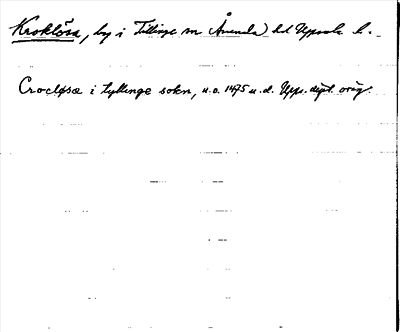 Kroklösa, by i Tillinge sn Åsunda) hd Uppsala l.
Crocløsæ i tyllinge sokn, u.o. 1475 u.d. Upps. dipl. orig.